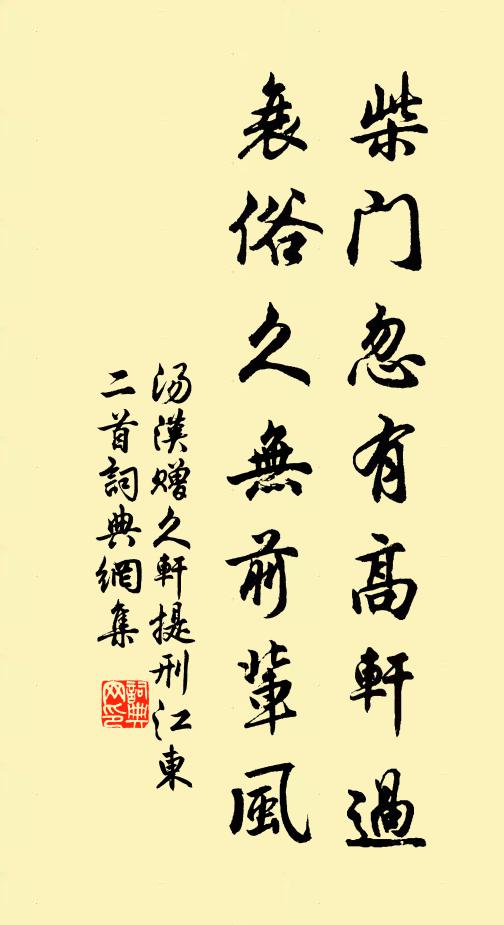 柴门忽有高軒過
衰俗久無前輩風
汤漢赠久軒提刑江東
二首詞典網集
詞典网印